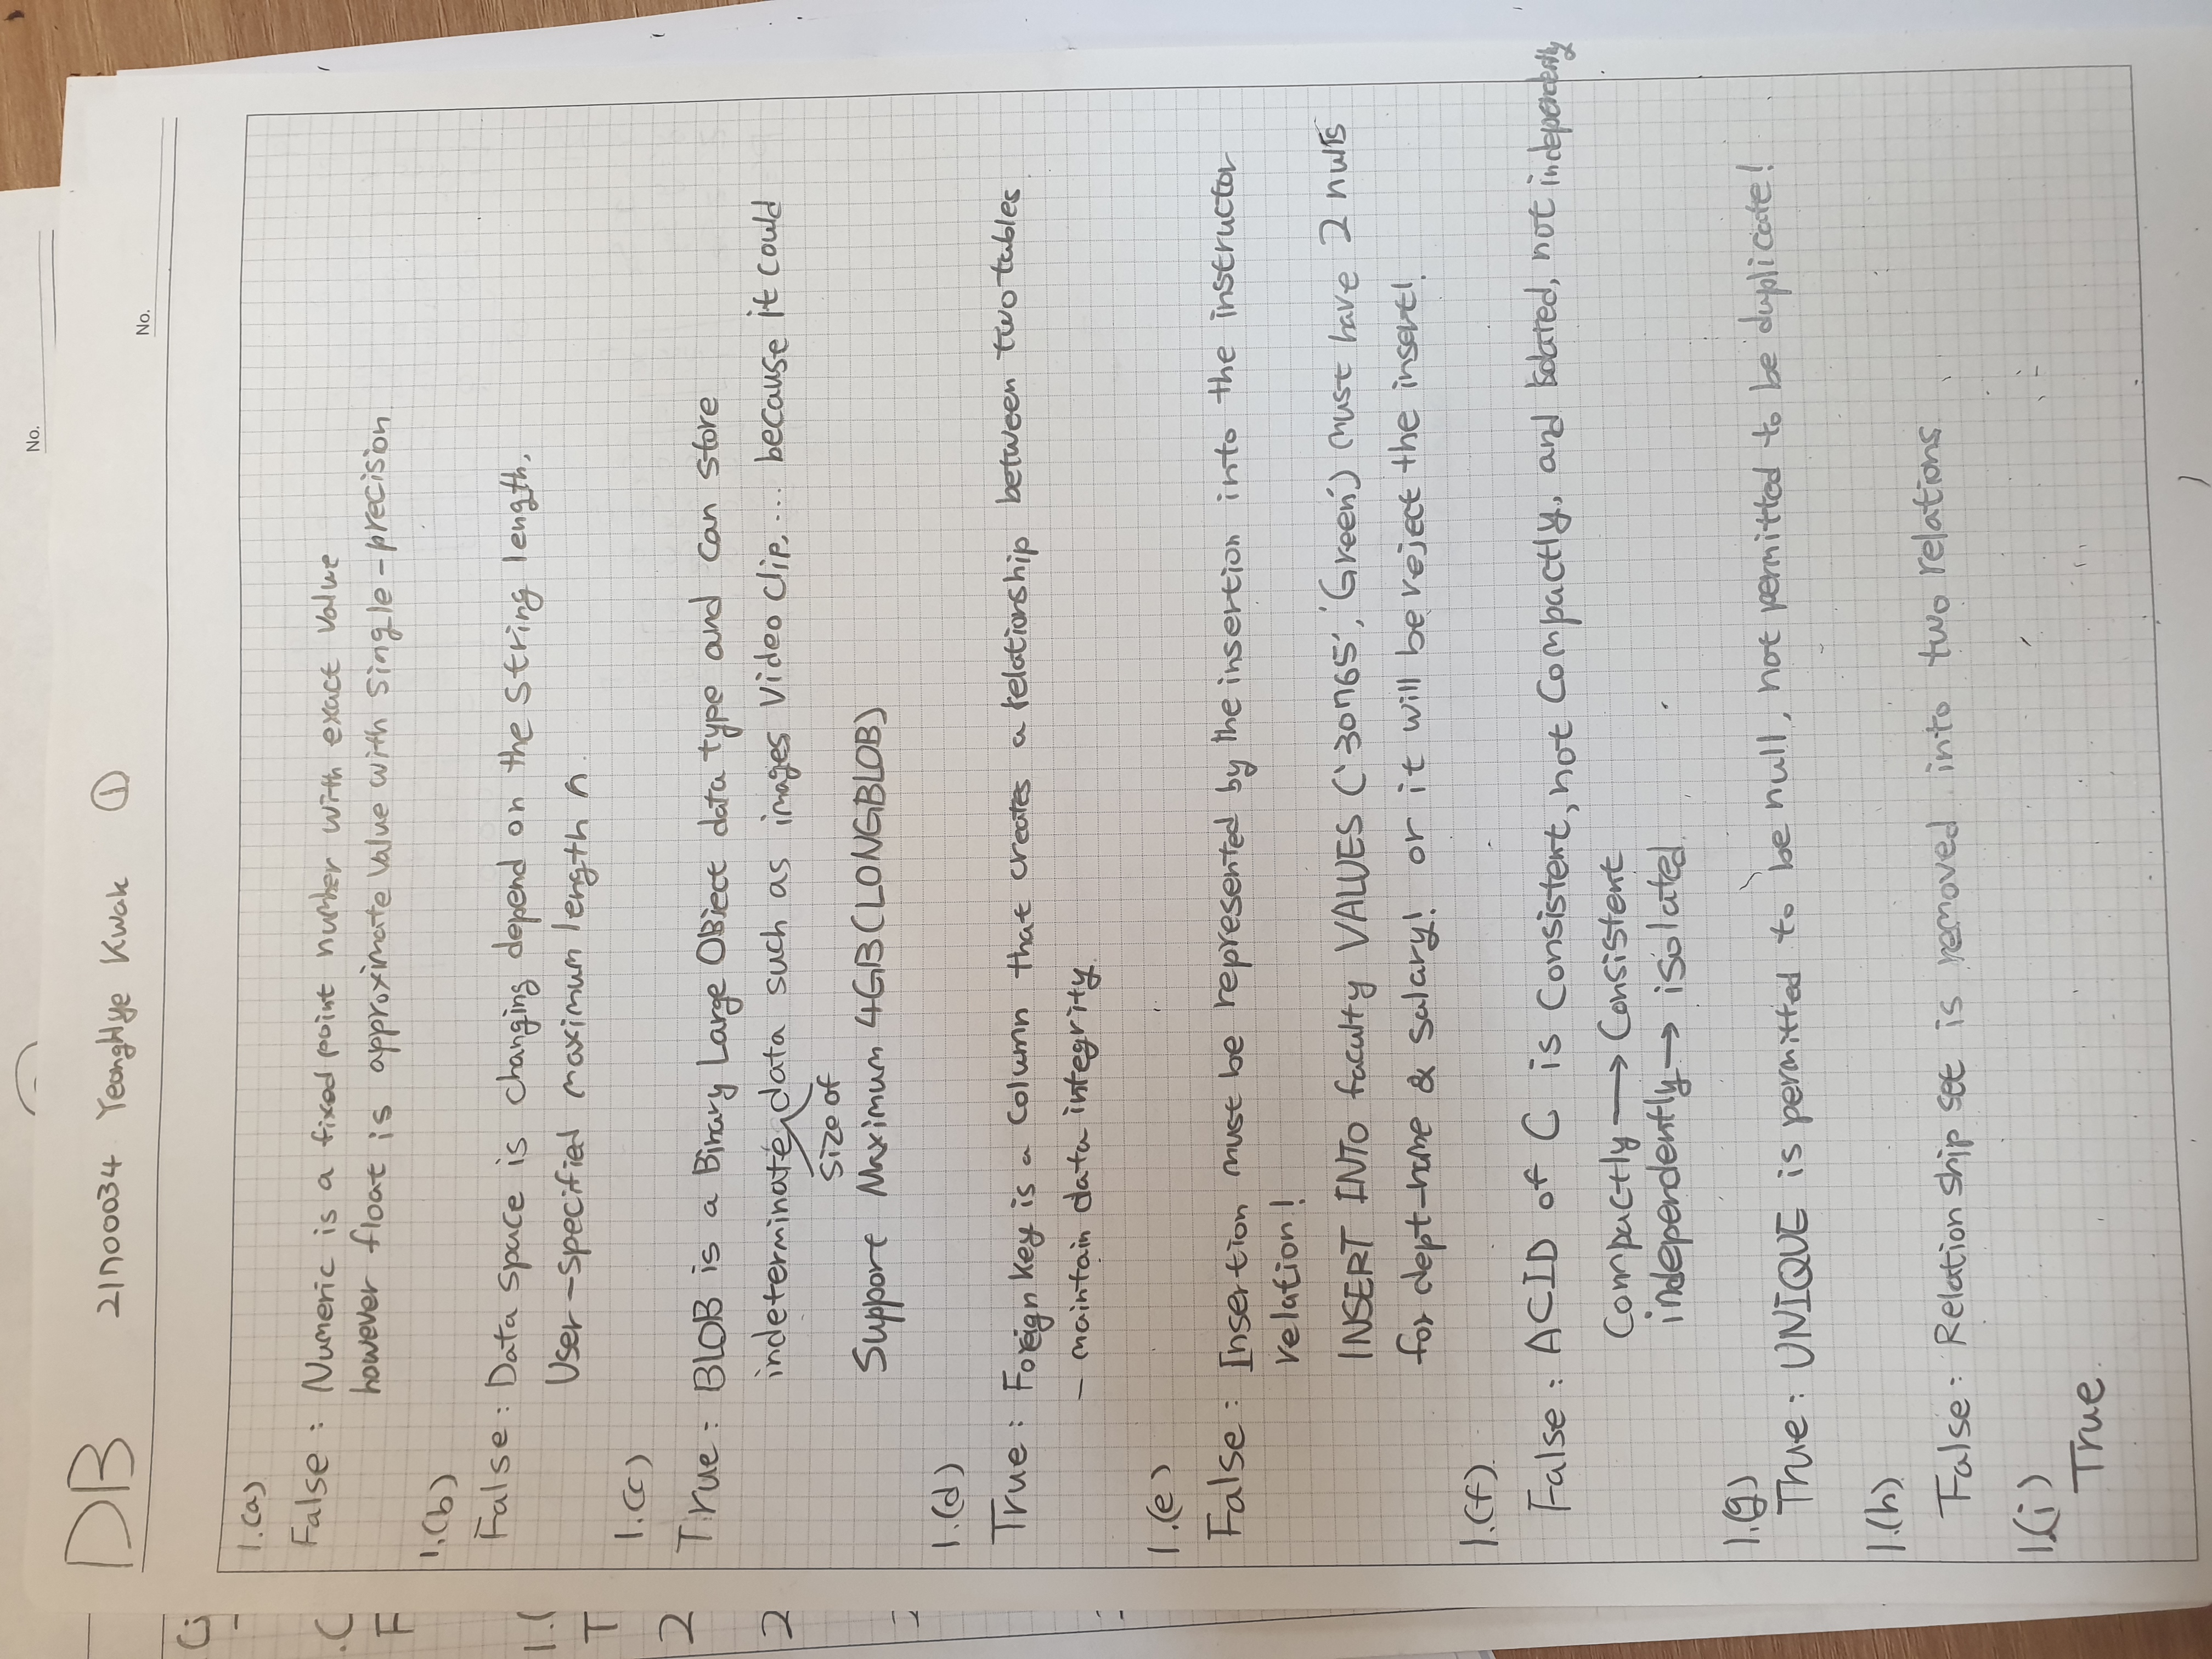 No.
DB 21700034 YeongHye Kwak ①
No.
1.(a)
False : Numeric is a fixed point number with exact value
however float is approximate value with single-precision
1.(b)
False : Data space is changing depend on the string length,
User-specified maximum length n.
1.(c)
True : BLOB is a Binary Large OBject data type and can store
indeterminate data such as images video clip, ... because it could
size of
support Maximum 4GB(LONGBLOB)
1.(d)
True : Foreign key is a column that creates a relationship between two tables
- maintain data integrity
1.(e)
False : Insertion must be represented by the insertion into the instructor
relation!
INSERT INTO faculty VALUES ('30765', 'Green') must have 2 nulls
for dept-name & salary! or it will be reject the insert!
1.(f)
False : ACID of C is consistent, not compactly, and isolated, not independently
Compactly → Consistent
independently → isolated
1.(g)
True : UNIQUE is permitted to be null, not permitted to be duplicate!
1.(h)
False : Relation ship set is removed into two relations
1.(i)
True